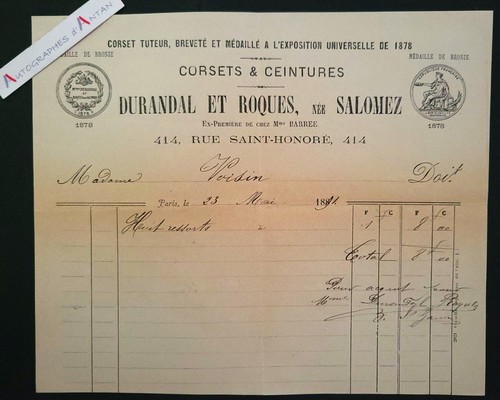 AUTOGRAPHES d'ANTAN
CORSET TUTEUR, BREVETÉ ET MÉDAILLÉ A L'EXPOSITION UNIVERSELLE DE 1878
MÉDAILLE DE BRONZE
MÉDAILLE DE BRONZE
CORSETS & CEINTURES
DURANDAL ET ROQUES, NÉE SALOMEZ
EX-PREMIÈRE DE CHEZ Mme BARREE
1878
1878
414, RUE SAINT-HONORÉ, 414
Madame Voisin Doit
Paris, le 23 Mai
F C F C
Huit ressorts 1 8 00
Total 8 00
Pour acquit
Mme